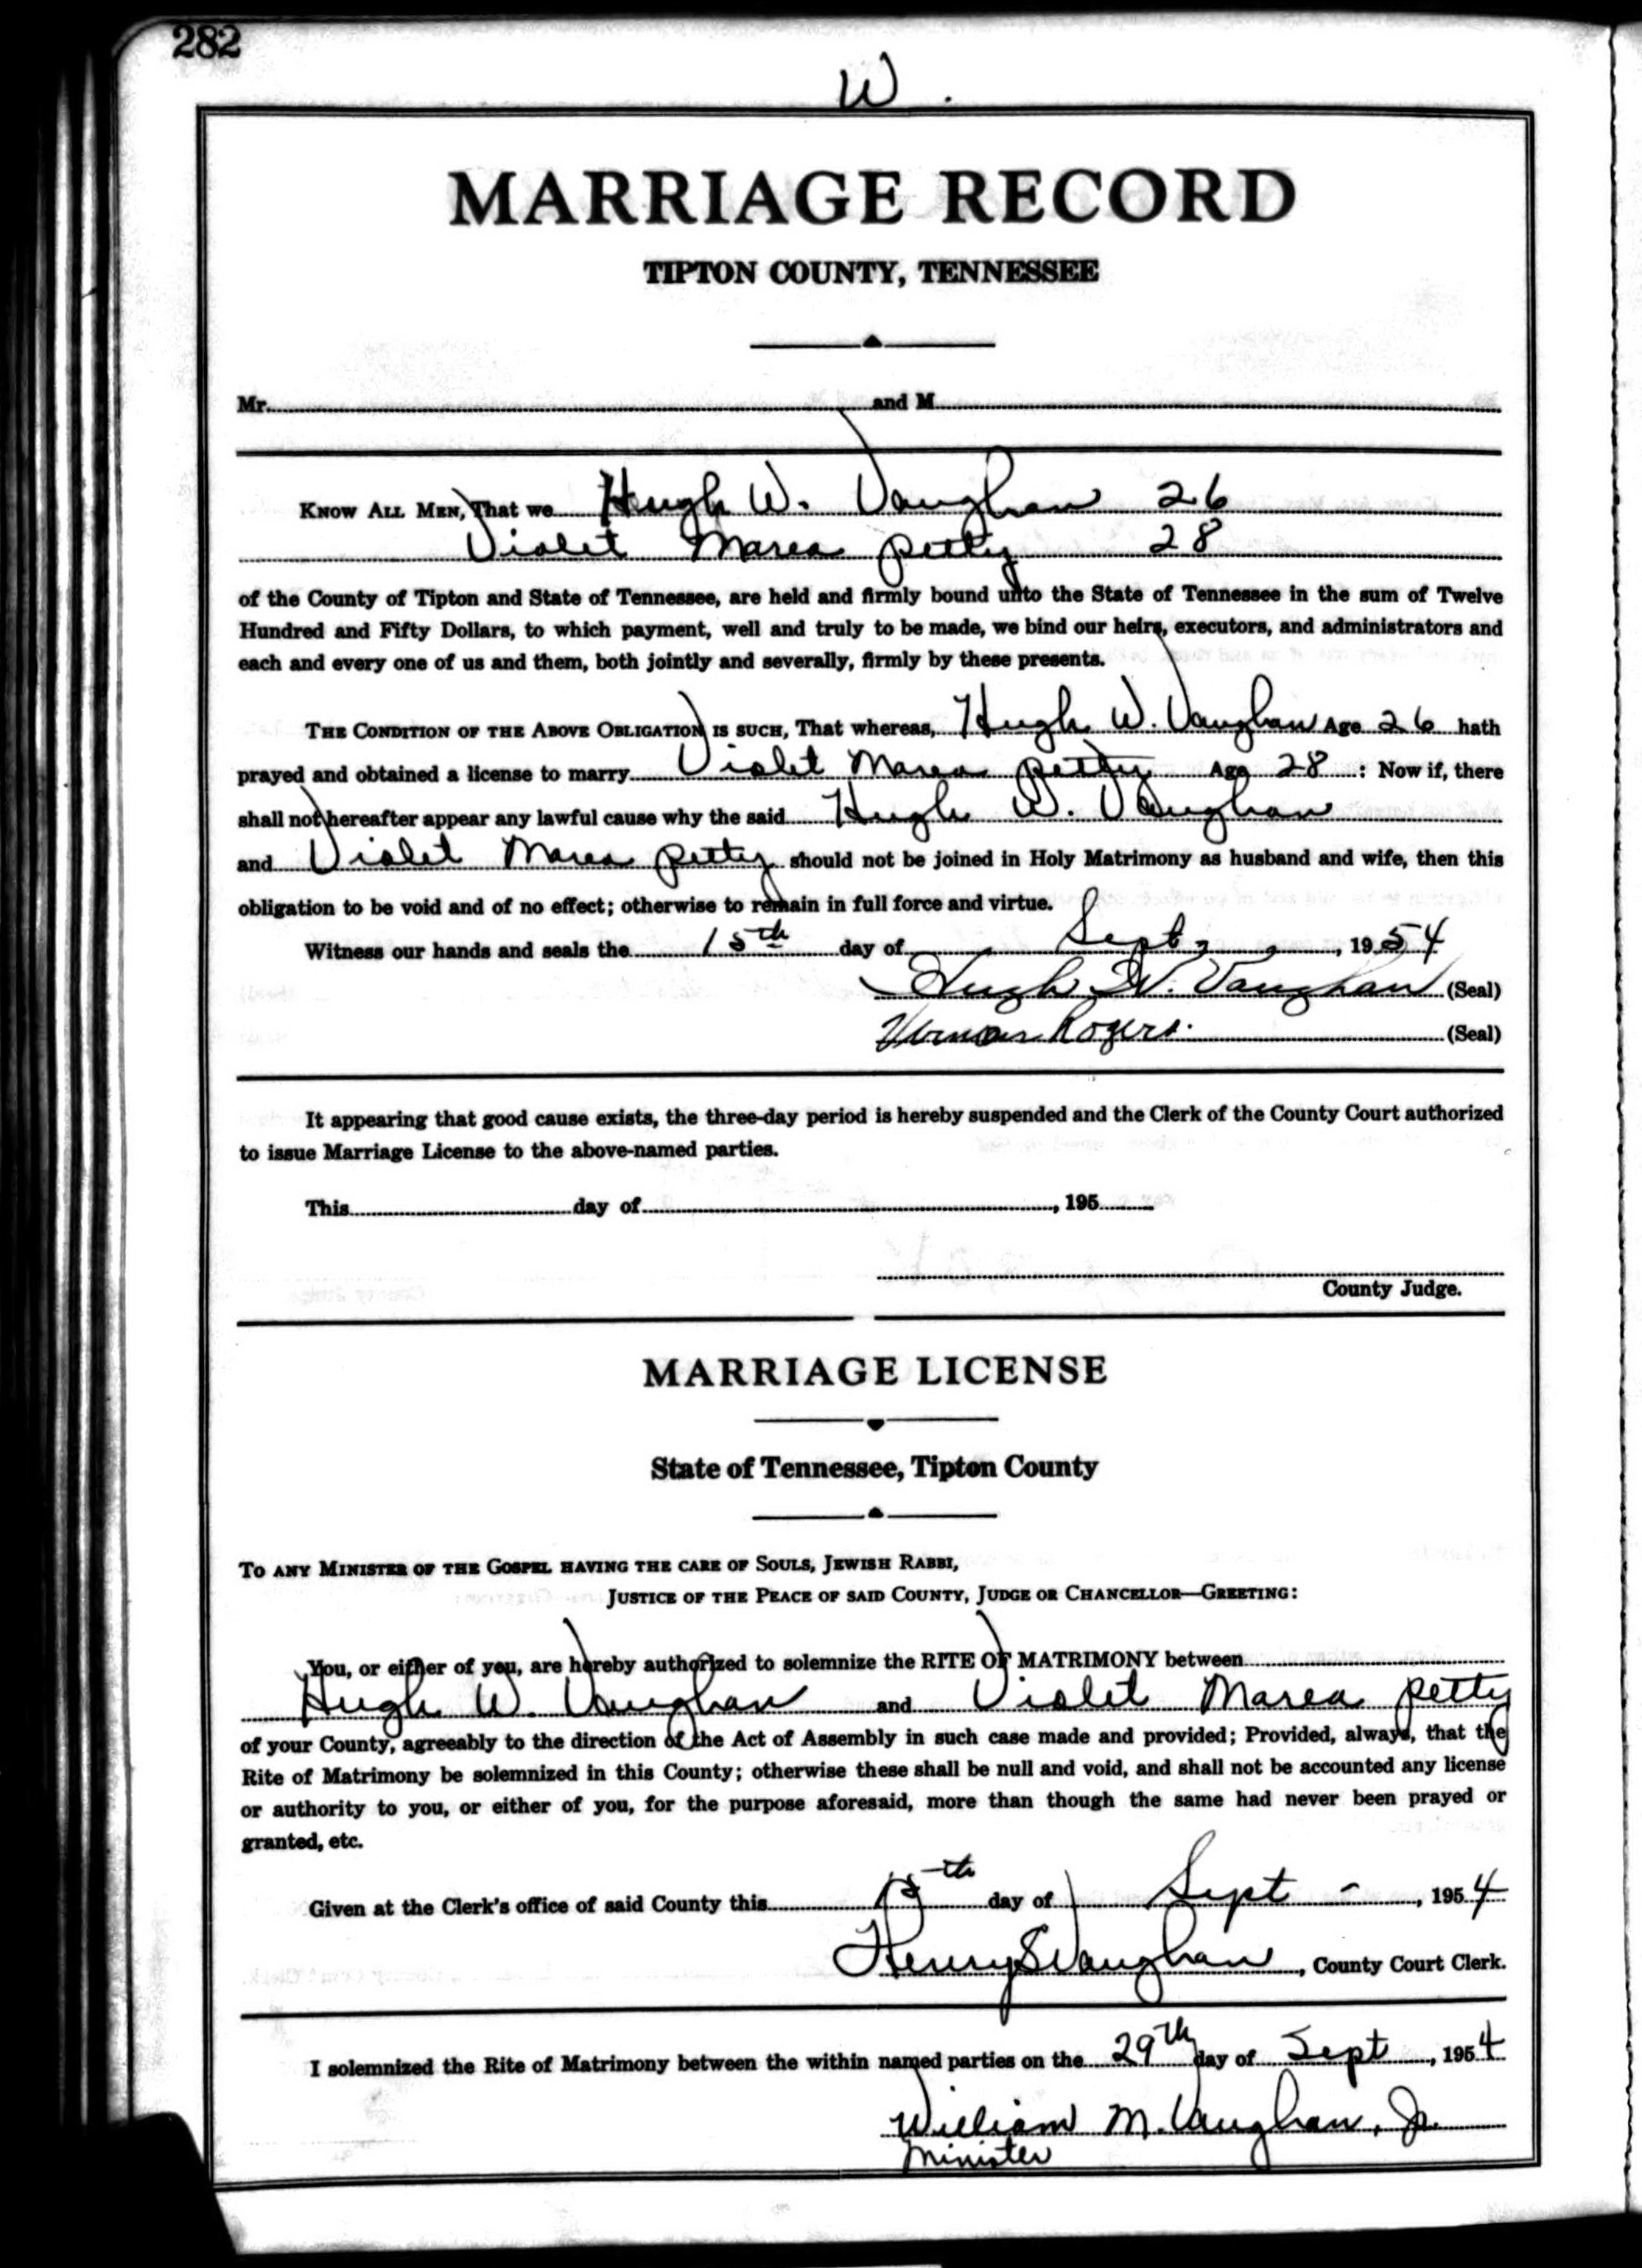 282
W
MARRIAGE RECORD
TIPTON COUNTY, TENNESSEE
Mr. and M
KNOW ALL MEN, That we Hugh W. Vaughan 26
Violet Marea Petty 28
of the County of Tipton and State of Tennessee, are held and firmly bound unto the State of Tennessee in the sum of Twelve
Hundred and Fifty Dollars, to which payment, well and truly to be made, we bind our heirs, executors, and administrators and
each and every one of us and them, both jointly and severally, firmly by these presents.
THE CONDITION OF THE ABOVE OBLIGATION IS SUCH, That whereas, Hugh W. Vaughan Age 26 hath
prayed and obtained a license to marry Violet Marea Petty Age 28 : Now if, there
shall not hereafter appear any lawful cause why the said Hugh W. Vaughan
and Violet Marea Petty should not be joined in Holy Matrimony as husband and wife, then this
obligation to be void and of no effect; otherwise to remain in full force and virtue.
Witness our hands and seals the 15th day of Sept, , 1954
Hugh W. Vaughan (Seal)
Vernon Rogers. (Seal)
It appearing that good cause exists, the three-day period is hereby suspended and the Clerk of the County Court authorized
to issue Marriage License to the above-named parties.
This day of , 195
County Judge.
MARRIAGE LICENSE
State of Tennessee, Tipton County
TO ANY MINISTER OF THE GOSPEL HAVING THE CARE OF SOULS, JEWISH RABBI,
JUSTICE OF THE PEACE OF SAID COUNTY, JUDGE OR CHANCELLOR—GREETING:
You, or either of you, are hereby authorized to solemnize the RITE OF MATRIMONY between
Hugh W. Vaughan and Violet Marea Petty
of your County, agreeably to the direction of the Act of Assembly in such case made and provided; Provided, always, that the
Rite of Matrimony be solemnized in this County; otherwise these shall be null and void, and shall not be accounted any license
or authority to you, or either of you, for the purpose aforesaid, more than though the same had never been prayed or
granted, etc.
Given at the Clerk's office of said County this 15th day of Sept - , 1954
Henry S Vaughan, County Court Clerk.
I solemnized the Rite of Matrimony between the within named parties on the 29th day of Sept , 1954
William M. Vaughan, Jr.
Minister